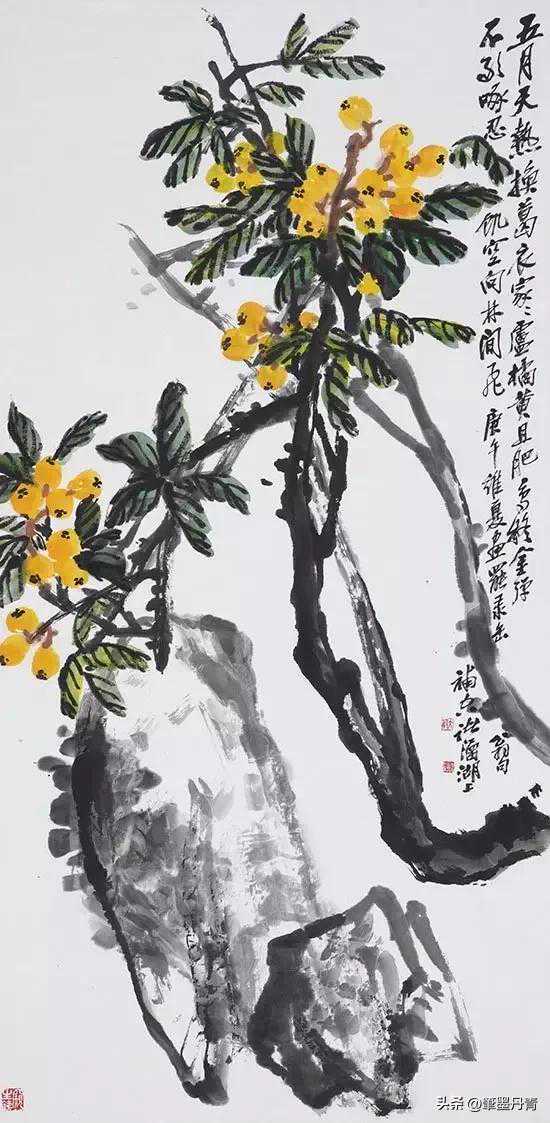 五月天熱換葛衣家〻盧橘黄且肥鳥疑金彈
不敢啄忍飢空向林間飛 庚午夏畫罷录缶
翁句
補白湖上
头条 @筆墨丹青